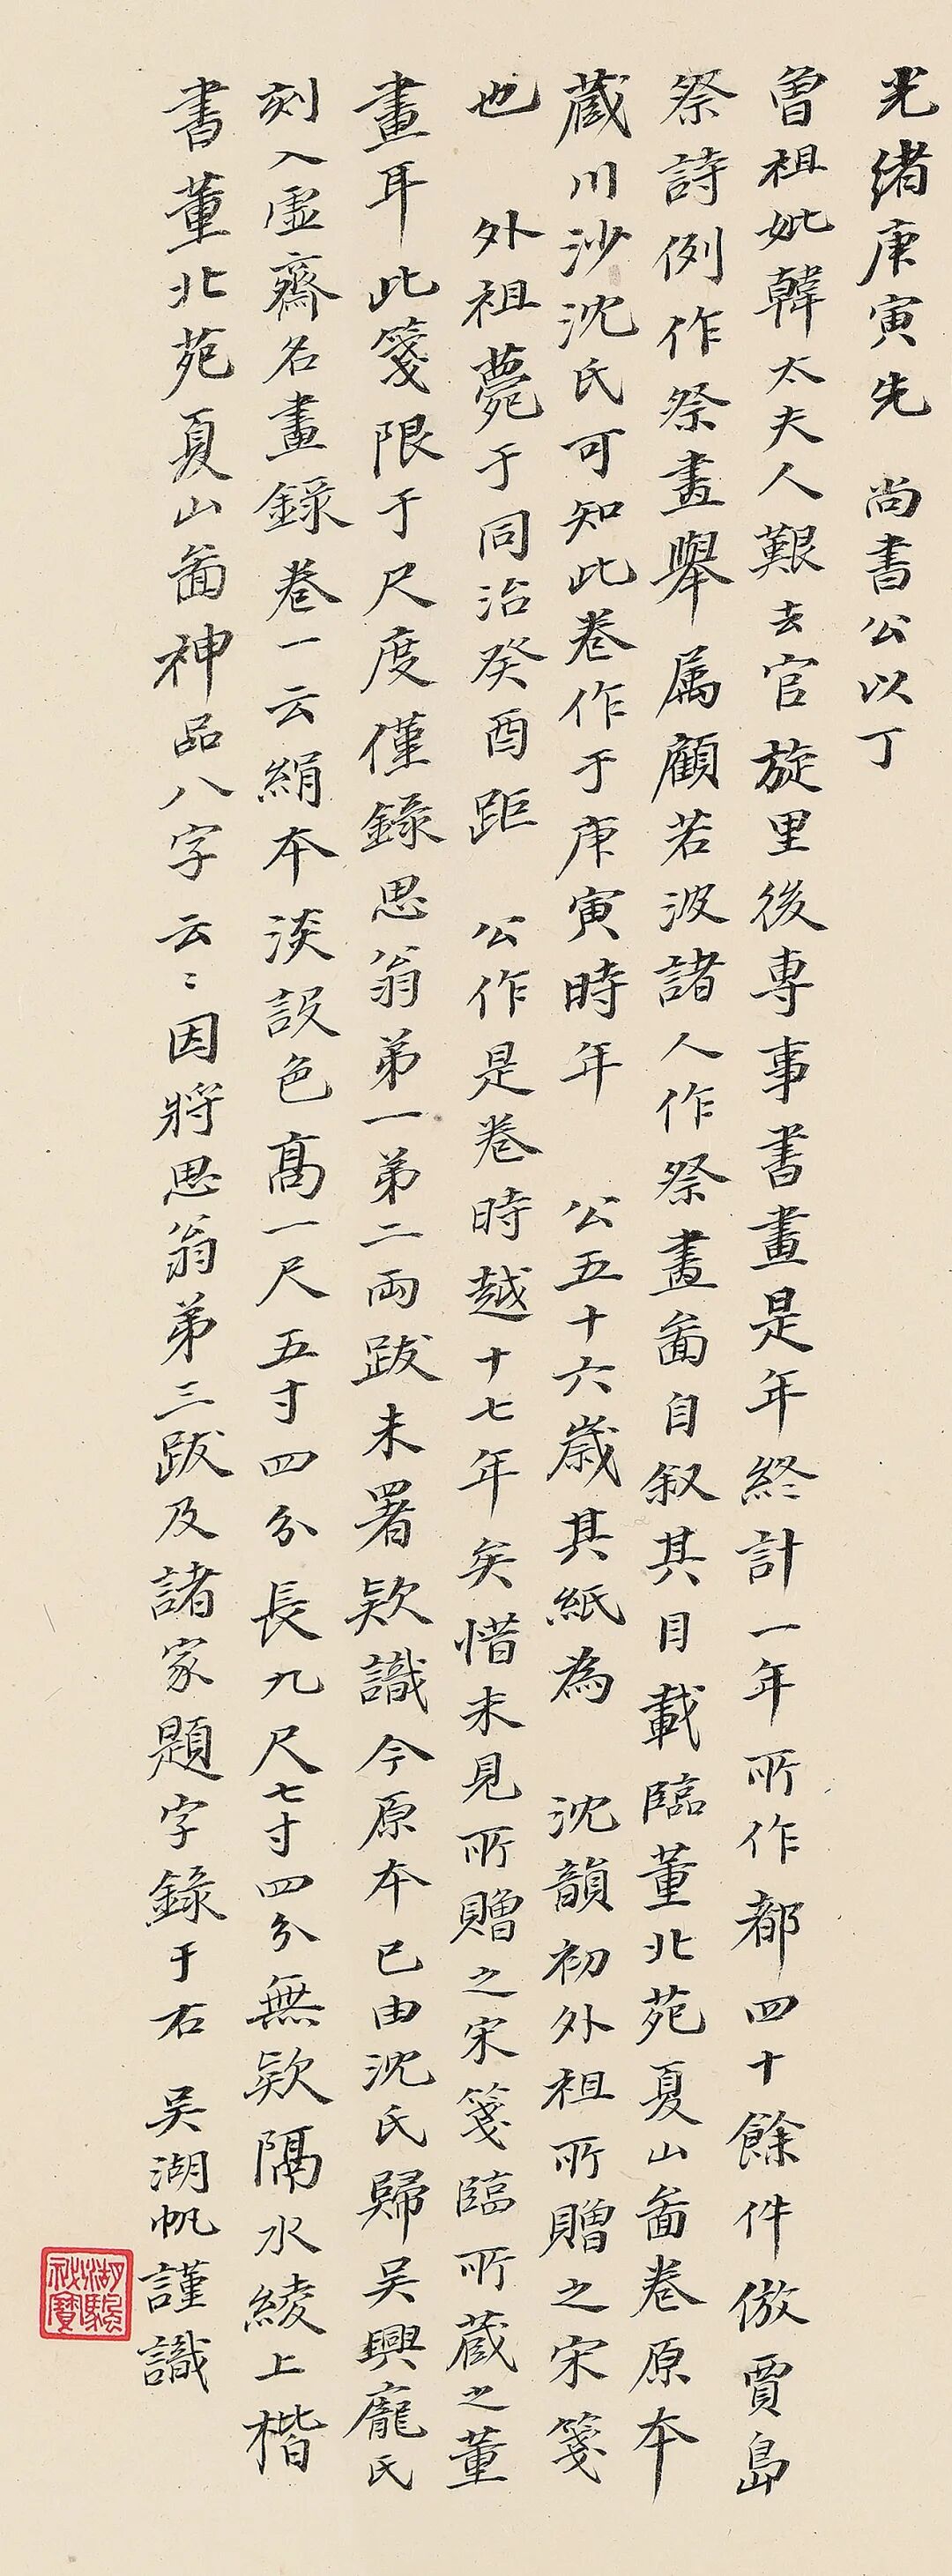 光緒庚寅先　尚書公以丁
曾祖妣韓太夫人艱去官旋里後專事書畫是年終計一年所作都四十餘件倣賈島
祭詩例作祭畫舉屬顧若波諸人作祭畫啚自叙其目載臨董北苑夏山啚卷原本
蔵川沙沈氏可知此卷作于庚寅時年　公五十六歲其紙為　沈韻初外祖所贈之宋箋
也　外祖薨于同治癸酉距　公作是卷時越十七年矣惜未見所贈之宋箋臨所蔵之董
畫耳此箋限于尺度僅錄思翁弟一弟二兩跋未署款識今原本已由沈氏歸吴興龐氏
刻入虛齋名畫錄卷一云絹本淡設色高一尺五寸四分長九尺七寸四分無款隔水綾上楷
書董北苑夏山啚神品八字云〻因將思翁弟三跋及諸家題字錄于右　吴湖帆謹識
湖驅祕寶